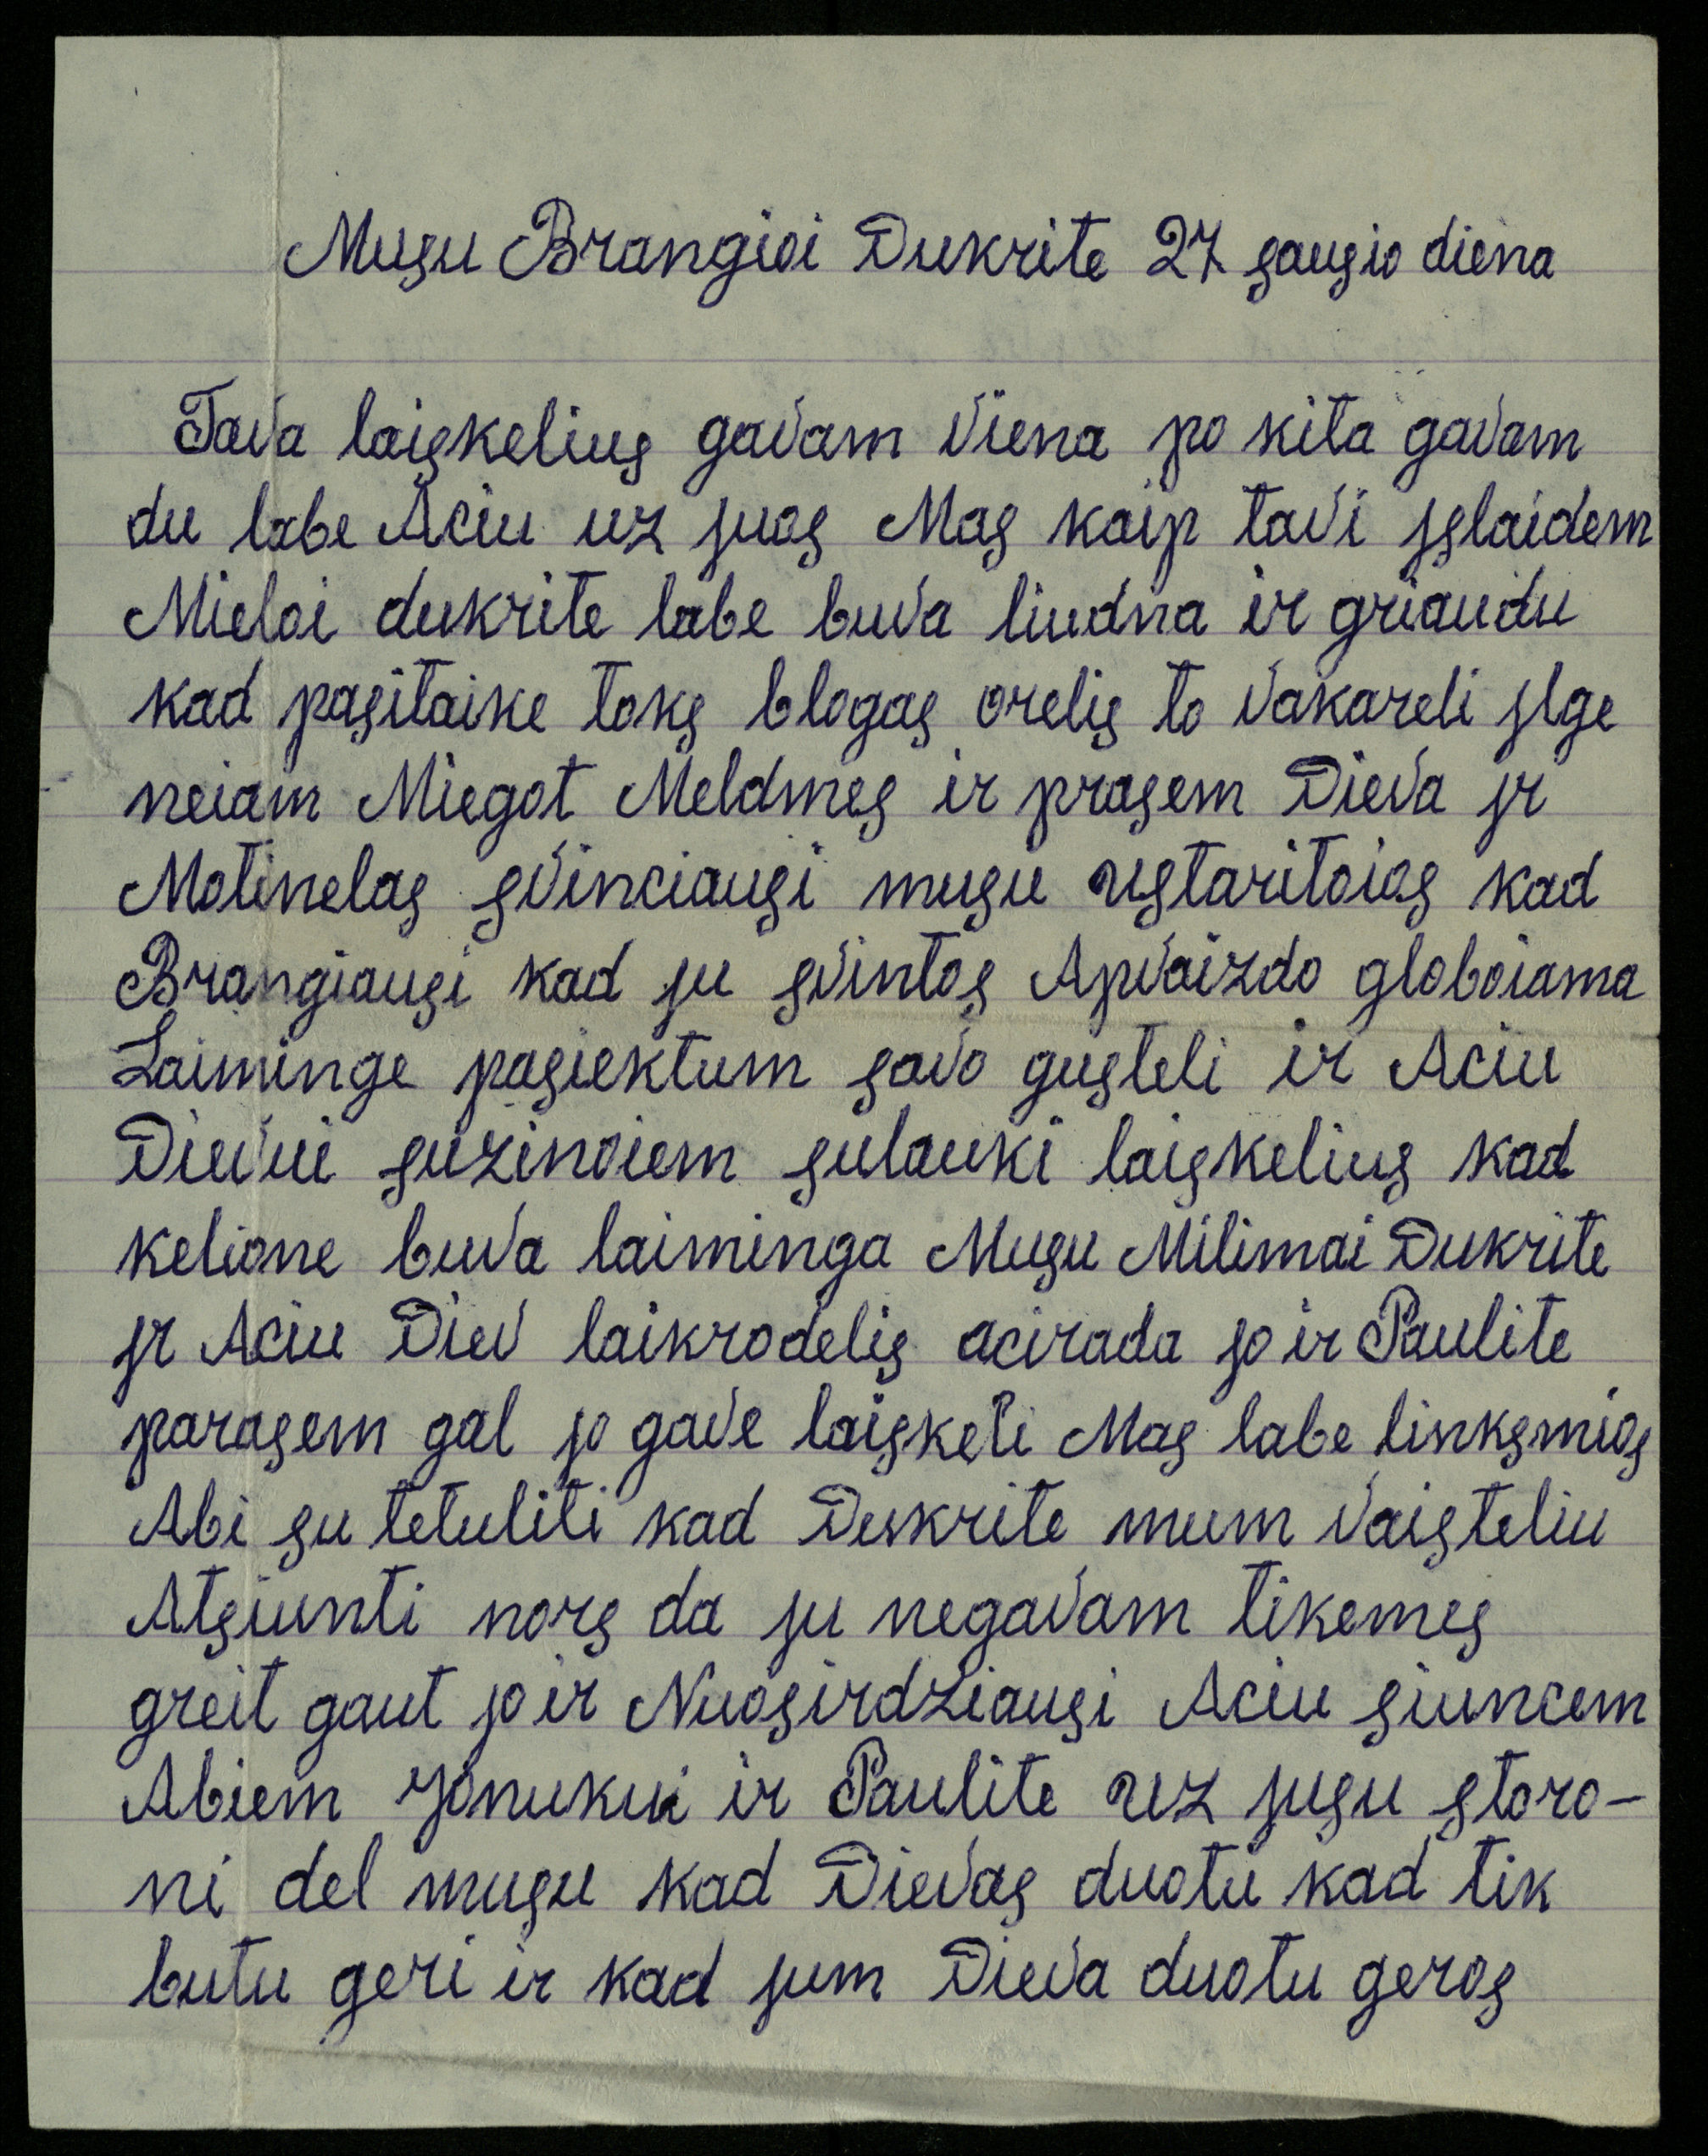 Musu Brangioi Dukrite 27 sausio diena
Tava laiskelius gavam viena po kita gavam
du labe Aciu uz juos Mas kaip tavi jslaidem
Mieloi dukrite labe buva liudna ir griaudu
kad pasitaike toks blogas orelis to vakareli jlge
neiam Miegot Meldmes ir prasem Dieva jr
Motinelas svinciausi musu ustaritoios kad
Brangiausi kad ju svintos Apvaizdo globoiama
Laiminge pasiektum savo gusteli ir Aciu
Dievui suzinoiem sulauki laiskelius kad
kelione buva laiminga Musu Milimai Dukrite
jr Aciu Diev laikrodelis acirada jo ir Paulite
parasem gal jo gave laiskeli Mas labe linksmios
Abi su tetuliti kad Dukrite mum vaisteliu
Atsiunti nors da ju negavam tikemes
greit gaut jo ir Nuosirdziausi Aciu siuncem
Abiem Jonukui ir Paulite uz jusu storo-
ni del musu kad Dievas duotu kad tik
butu geri ir kad jum Dieva duotu geros